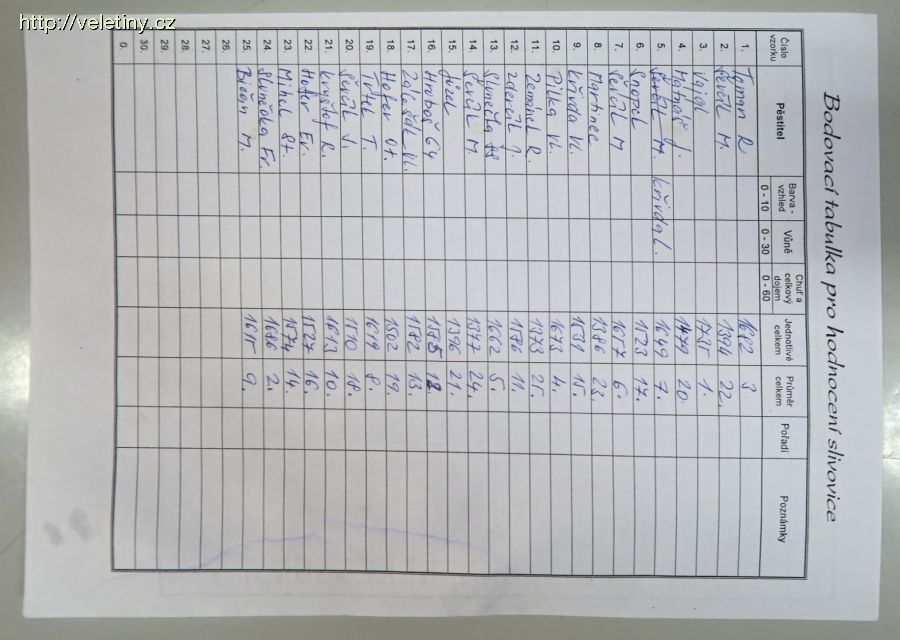 http://veletiny.cz
Bodovací tabulka pro hodnocení slivovice
Číslo vzorku Pěstitel Barva - vzhled 0 - 10 Vůně 0 - 30 Chuť a celkový dojem 0 - 60 Jednotlivé celkem Průměr celkem Pořadí Poznámky
1. Toman R 1692 3.
2. Ševčíl M. 1394 22.
3. Vajdl 1735 1.
4. Matnáš J. 1479 20
5. Ševčíl M. Křivda L. 1649 7.
6. Snopek 1523 17.
7. Ševčíl M 1657 6.
8. Martinec 1386 23.
9. Křivda Vl. 1531 15.
10. Pilka Vl. 1673 4.
11. Zemánek R. 1373 25.
12. Zdercík J. 1586 11.
13. Slunečka 1662 5.
14. Ševčíl M. 1377 24.
15. Júzel 1396 21.
16. Hraboš 64 12.
17. Založák Vl. 1582 13.
18. Hofer Ot. 1502 19.
19. Trtek T. 1649 8.
20. Ševčíl J. 1510 18.
21. Kryštof R. 1613 10.
22. Hofer Ev. 1527 16.
23. Mikel St. 1574 14.
24. Slunečka Fr. 1686 2.
25. M. 1615 9.
26.
27.
28.
29.
30.
0.